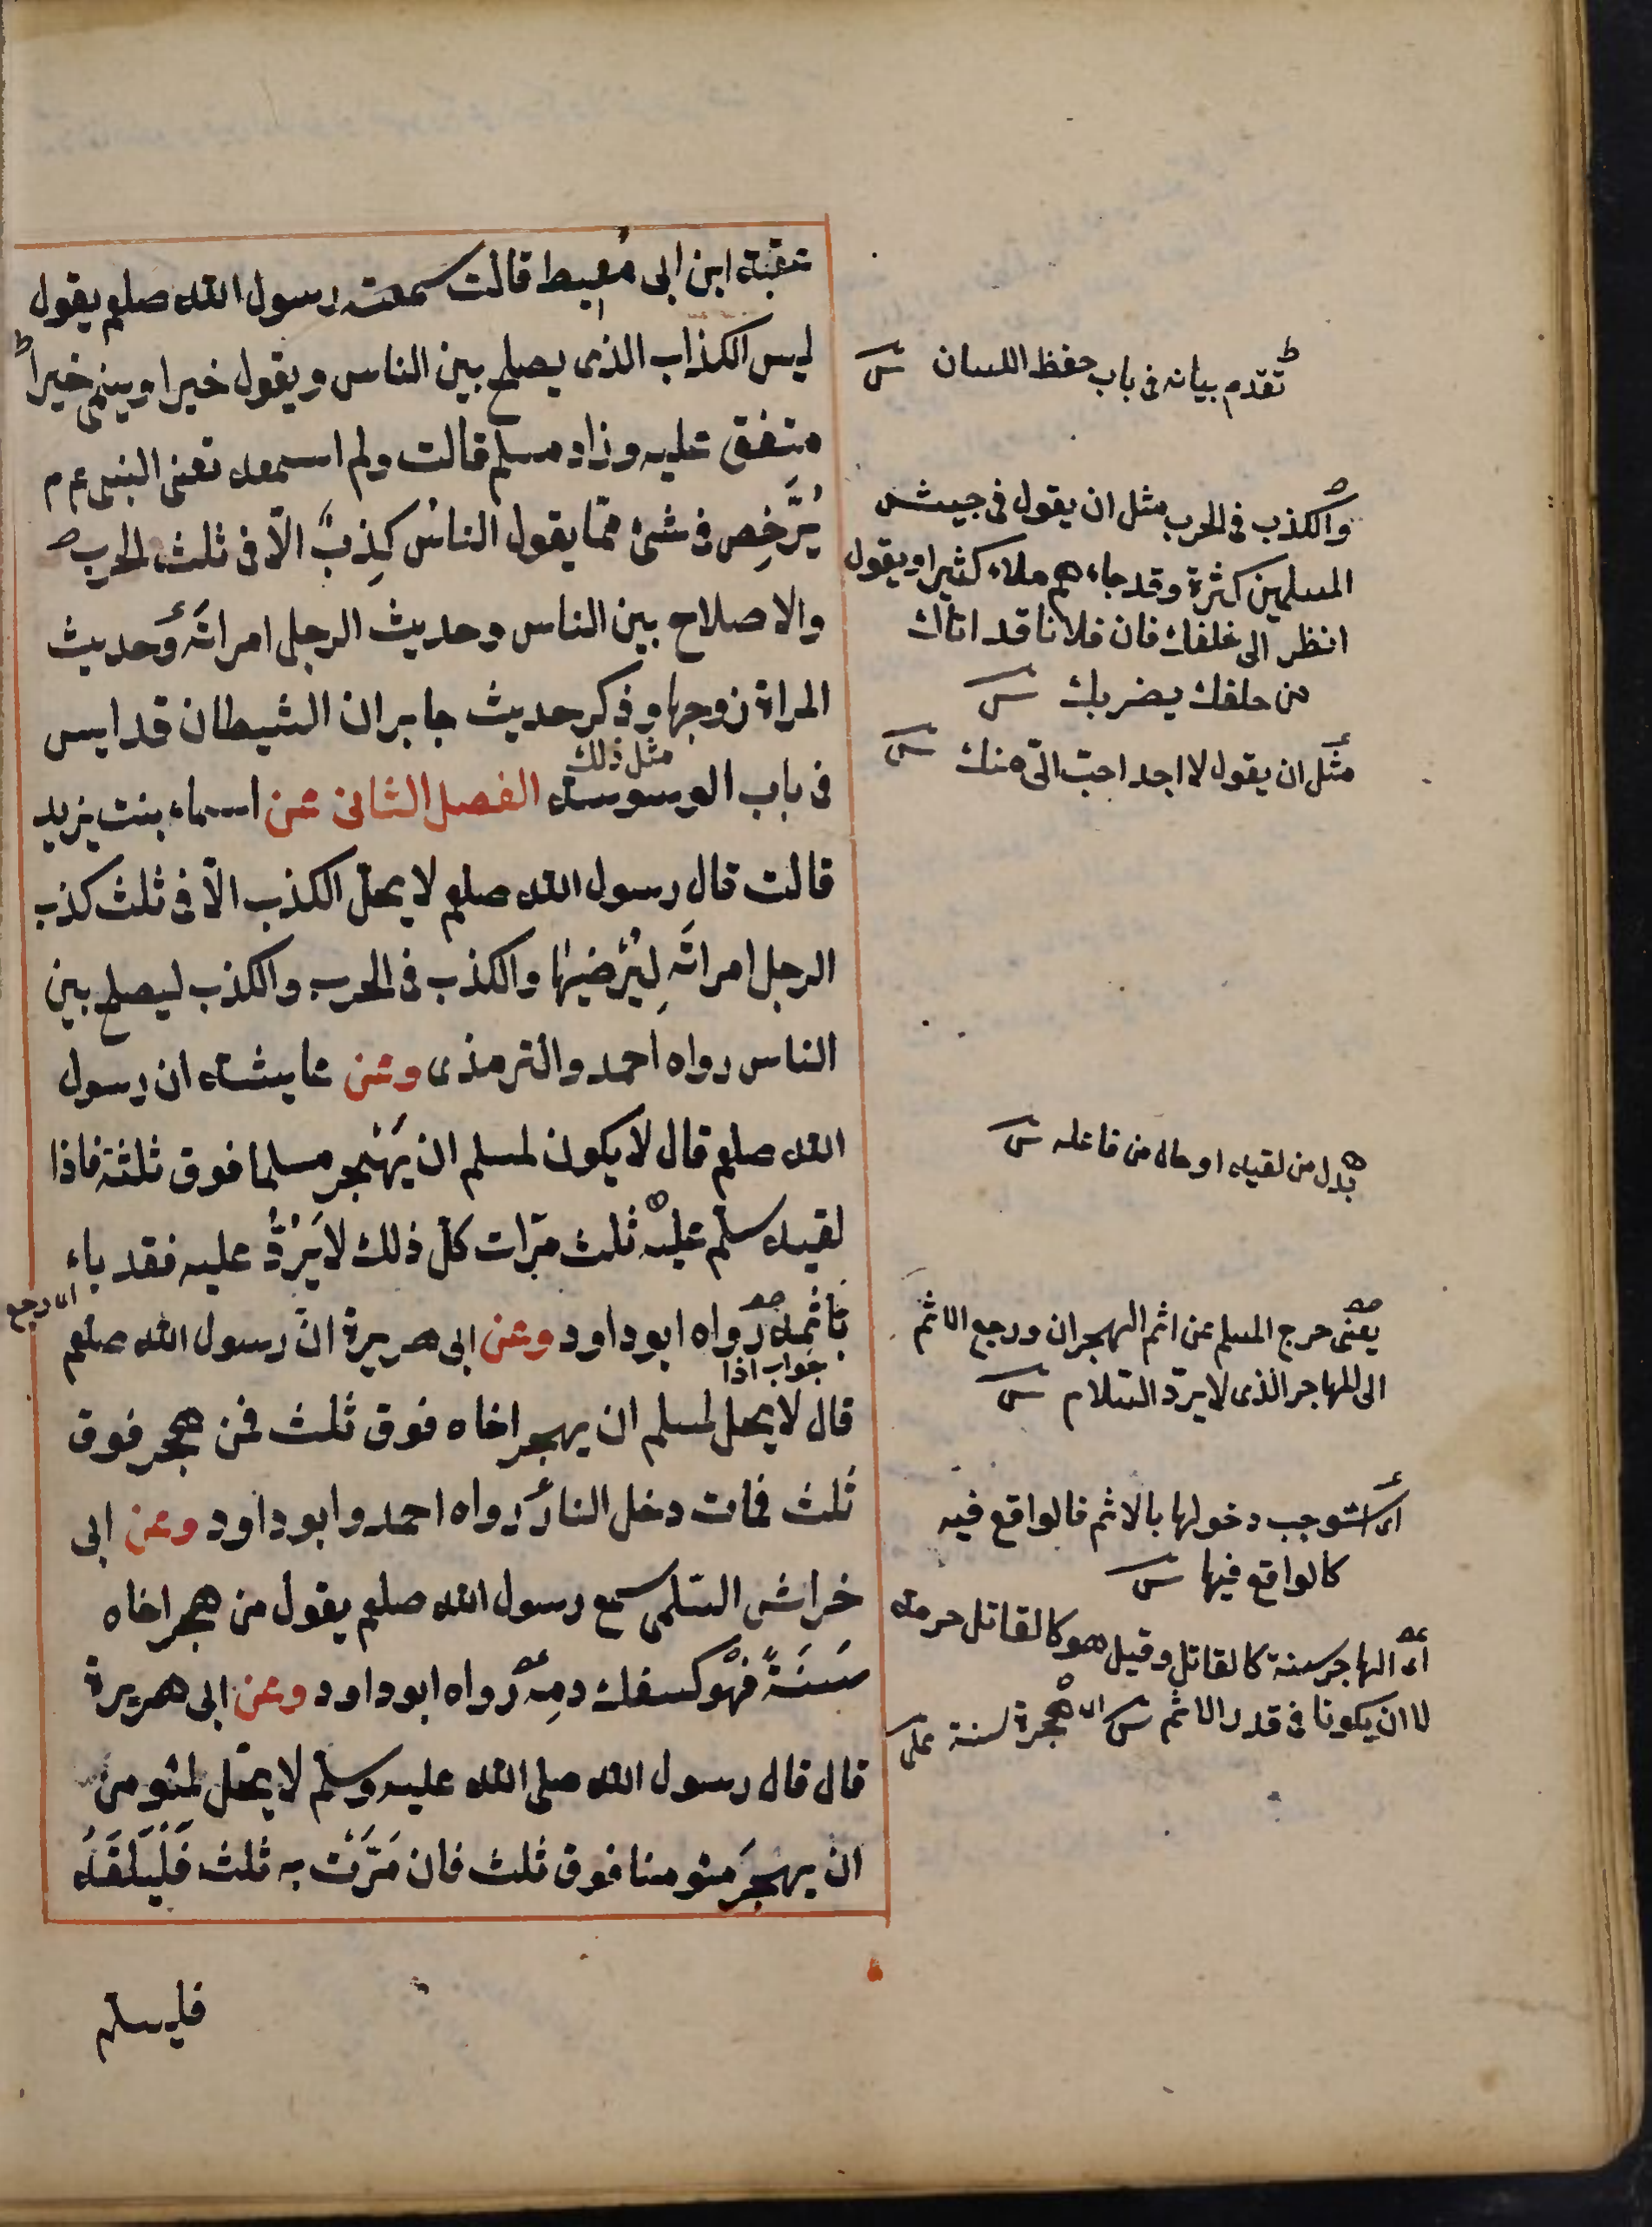 عقبة ابن ابى مُعيط قالت سمعت رسول الله صلعم يقول
ليس الكذاب الذى يصلح بين الناس ويقول خيرا وينمى خيراً
متفق عليه وزاد مسلم قالت ولم اسمعه تعنى النبى عم م
يُرَّخِص فى شئ ممّا يقول الناسُ كَذِبٌ الّا فى ثلث الحرب
والاصلاح بين الناس وحديث الرجل امراتَه وحديث
المراة زوجها وذكر حديث جابر ان الشيطان قد ايس
مثل ذلك
فى باب الوسوسة الفصل الثانى عن اسماء بنت يزيد
قالت قال رسول الله صلعم لا يحلّ الكذب الّا فى ثلث كذب
الرجل امراتَه لِيُرْضيَها والكذب فى الحرب والكذب ليصلح بين
الناس رواه احمد والترمذى وعن عايشة ان رسول
الله صلعم قال لا يكون لمسلم ان يَهْجر مسلما فوق ثلثة فاذا
لقيه سلّم عليه ثلث مرّات كلّ ذلك لا يَرُدُّ عليه فقد باء
اى رجع
بَاثمه رواه ابو داود وعن ابى هريرة انّ رسول الله صلعم
جواب اذا
قال لا يحل لمسلم ان يهجر اخاه فوق ثلث فمن هجر فوق
ثلث فمات دخل النار رواه احمد وابو داود وعن ابى
خراش السّلمى سمع رسول الله صلعم يقول من هجر اخاه
سَنَةً فهْو كسفك دمِه رواه ابو داود وعن ابى هريرة
قال قال رسول الله صلى الله عليه وسلّم لا يحلّ لمئومن
ان يهجرَ مئومنا فوق ثلث فان مَرَّتْ به ثلث فَلْيَلْقَهُ
فليسلم
تقدم بيانه فى باب حفظ اللسان
والكذب فى الحرب مثل ان يقول فى جيش
المسلمين كثرة وقد جاءهم ملاء كثير او يقول
انظر الى خلفك فان فلانا قد اتاك
من خلفك يضربك
مثل ان يقول لا اجد احبّ الىّ منك
بدل من لقيه او حال من فاعله
يعنى خرج المسلم عن اثم الهجران ورجع الاثم
الى المهاجر الذى لا يردّ السّلام
اى استوجب دخولها بالاثم فالواقع فيه
كالواقع فيها
اى الهاجر سنة كالقاتل وقيل هو كالقاتل حرمة
لا ان يكونا فى قدر الاثم اى هجرة سنة على